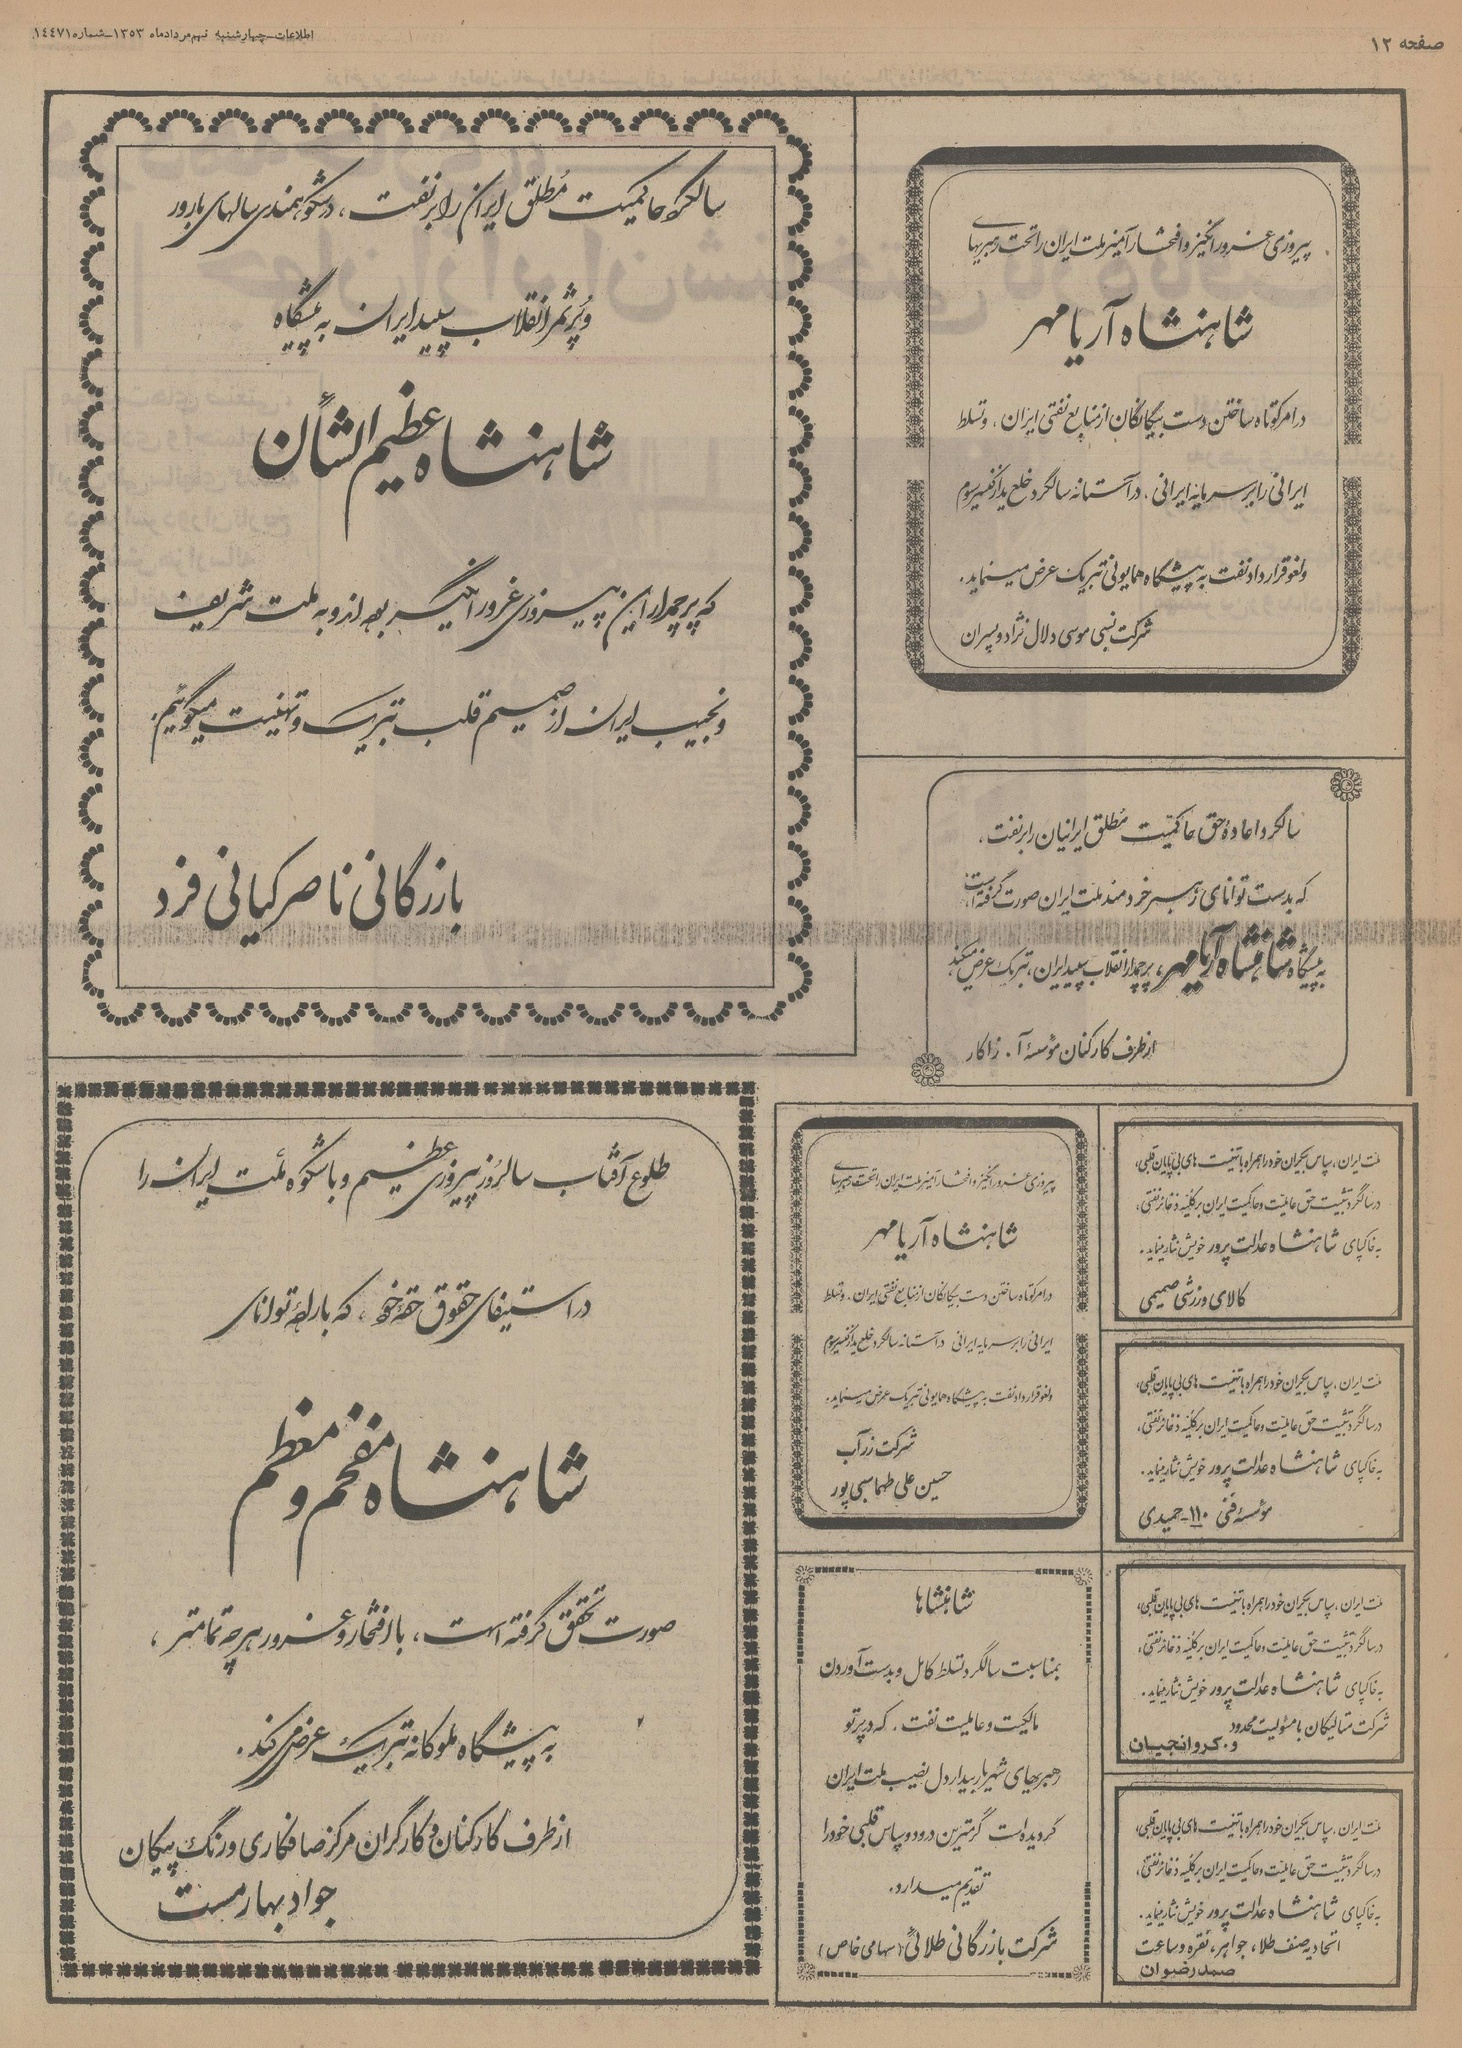 صفحه ۱۲
اطلاعات_چهارشنبه نهم مردادماه ۱۳۵۳_شماره ۱٤٤۷۱
پیروزی غرورانگیز و افتخارآمیز ملت ایران را تحت رهبریهای
شاهنشاه آریامهر
در امر کوتاه ساختن دست بیگانگان از منابع نفتی ایران، و تسلط
ایرانی را بر سرمایه ایرانی، در آستانه سالگرد خلع ید از کنسرسیوم
و لغو قرارداد نفت به پیشگاه همایونی تبریک عرض مینماید.
شرکت نسبی موسی دلال نژاد و پسران
سالگرد حاکمیت مُطلق ایران را بر نفت، در شکوهمندی سالهای بارور
و پُرثمر انقلاب سپید ایران به پیشگاه
شاهنشاه عظیم الشأن
که پرچمدار این پیروزی غرورانگیز بوده اند و به ملت شریف
و نجیب ایران از صمیم قلب تبریک و تهنیت میگوئیم.
بازرگانی ناصر کیانی فرد
سالگرد اعادهٔ حق حاکمیّت مُطلق ایرانیان را بر نفت،
که بدست توانای رهبر خردمند ملت ایران صورت گرفته است
به پیشگاه شاهنشاه آریامهر، پرچمدار انقلاب سپید ایران، تبریک عرض میکند
از طرف کارکنان مؤسسهٔ آ. زاکار
طلوع آفتاب سالروز پیروزی عظیم و باشکوه ملت ایران را
در استیفای حقوق حقهٔ خود، که با ارادهٔ توانای
شاهنشاه مفخم و معظم
صورت تحقق گرفته است، با افتخار و غرور هرچه تمامتر،
به پیشگاه ملوکانه تبریک عرض می کند.
از طرف کارکنان و کارگران مرکز صافکاری و رنگ پیکان
جواد بهارمست
پیروزی غرورانگیز و افتخارآمیز ملت ایران را تحت رهبریهای
شاهنشاه آریامهر
در امر کوتاه ساختن دست بیگانگان از منابع نفتی ایران، و تسلط
ایرانی را بر سرمایه ایرانی در آستانه سالگرد خلع ید از کنسرسیوم
و لغو قرارداد نفت به پیشگاه همایونی تبریک عرض مینماید.
شرکت زرآب
حسین علی طهماسبی پور
شاهنشاها
بمناسبت سالگرد تسلط کامل و بدست آوردن
مالکیت و عاملیت نفت، که در پرتو
رهبریهای شهریار بیداردل نصیب ملت ایران
گردیده است گرمترین درود و سپاس قلبی خود را
تقدیم میدارد.
شرکت بازرگانی طلائی (سهامی خاص)
ملت ایران، سپاس بیکران خود را همراه با تهنیت های بی پایان قلبی،
در سالگرد تثبیت حق عاملیت و حاکمیت ایران بر کلیه ذخائر نفتی،
به خاکپای شاهنشاه عدالت پرور خویش نثار مینماید.
کالای ورزشی صمیمی
ملت ایران، سپاس بیکران خود را همراه با تهنیت های بی پایان قلبی،
در سالگرد تثبیت حق عاملیت و حاکمیت ایران بر کلیه ذخائر نفتی،
به خاکپای شاهنشاه عدالت پرور خویش نثار مینماید.
مؤسسهٔ فنی ۱۱۰-حمیدی
ملت ایران، سپاس بیکران خود را همراه با تهنیت های بی پایان قلبی،
در سالگرد تثبیت حق عاملیت و حاکمیت ایران بر کلیه ذخائر نفتی،
به خاکپای شاهنشاه عدالت پرور خویش نثار مینماید.
شرکت متالیکان با مسؤلیت محدود
و. کروانجیان
ملت ایران، سپاس بیکران خود را همراه با تهنیت های بی پایان قلبی،
در سالگرد تثبیت حق عاملیت و حاکمیت ایران بر کلیه ذخائر نفتی،
به خاکپای شاهنشاه عدالت پرور خویش نثار مینماید.
اتحادیه صنف طلا، جواهر، نقره و ساعت
صمد رضوان